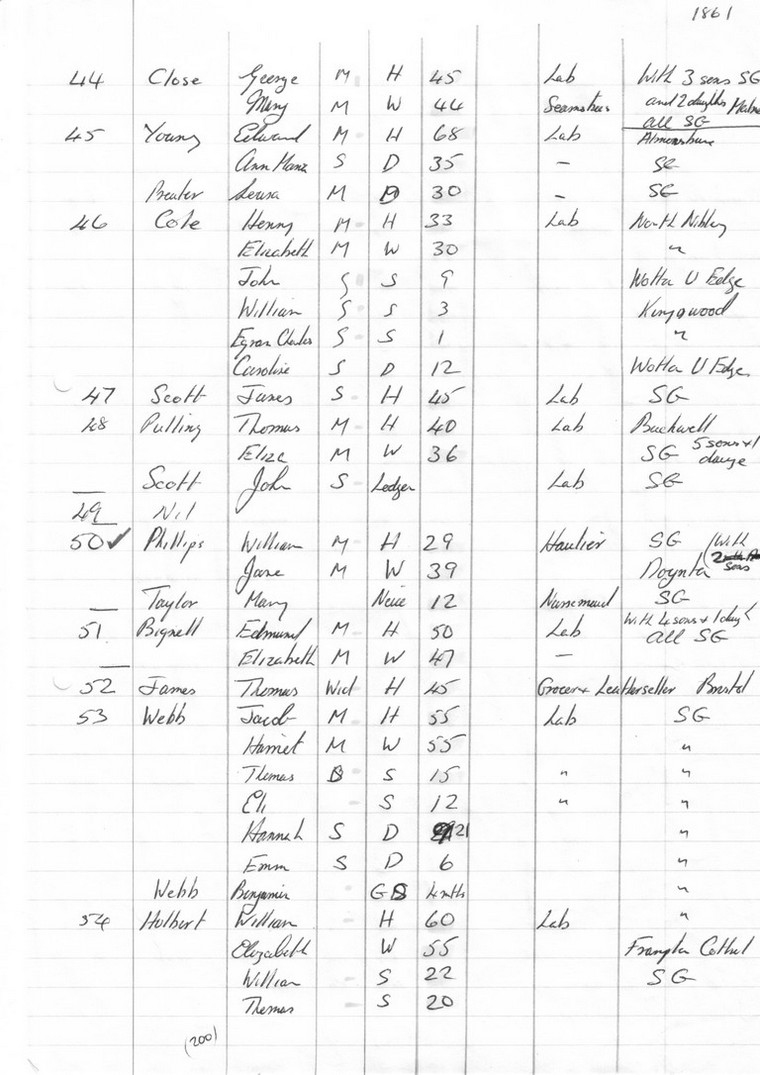 1861
44 Close George M H 45 Lab With 3 sons SG
Mary M W 44 Seamstress and 2 daughts
all SG
45 Young Edward M H 68 Lab
Ann Maria S D 35 - SG
Louisa M D 30 - SG
46 Cole Henry M H 33 Lab North Nibley
Elizabeth M W 30 "
John S S 9 Wotton U Edge
William S S 3 Kingswood
Charles S S 1 "
Caroline S D 12 Wotton U Edge
47 Scott James S H 45 Lab SG
48 Pulling Thomas M H 40 Lab
Eliza M W 36 SG 5 sons + 1
Scott John S Lodger Lab SG
49 Nil
50 ✓ Phillips William M H 29 Haulier SG (With
Jane M W 39 Doynton sons
Taylor Mary Neice 12 Nursemaid SG
51 Bignell Edmund M H 50 Lab With 4 sons + 1 daugh
all SG
Elizabeth M W 47 -
52 James Thomas Wid H 45 Grocer + Leatherseller Bristol
53 Webb Jacob M H 55 Lab SG
Harriet M W 55 "
Thomas S 15 " "
Eli S 12 " "
Hannah S D 21 "
Emm S D 6 "
Webb Benjamin GS 4 mths "
54 Holbert William H 60 Lab "
Elizabeth W 55
William S 22 SG
Thomas S 20
(200)